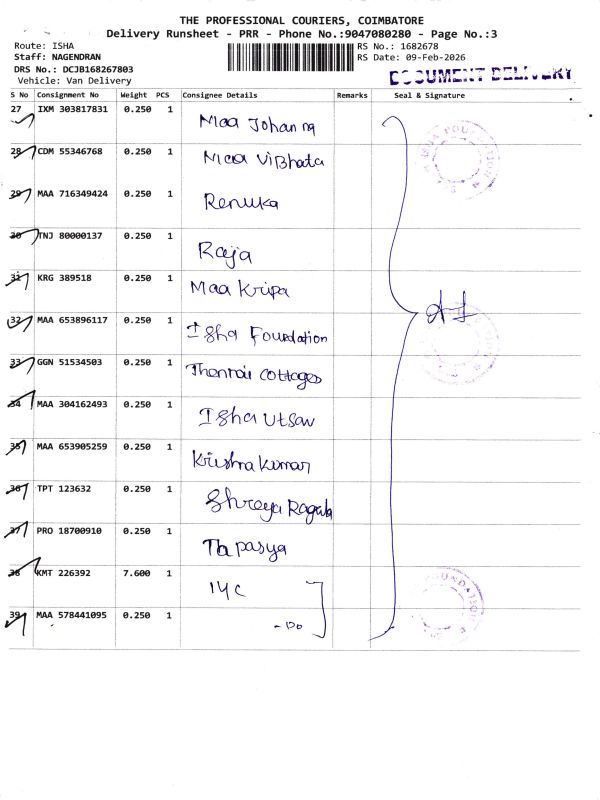 THE PROFESSIONAL COURIERS, COIMBATORE
Delivery Runsheet - PRR - Phone No.:9047080280 - Page No.:3
Route: ISHA RS No.: 1682678
Staff: NAGENDRAN RS Date: 09-Feb-2026
DRS No.: DCJB168267803
Vehicle: Van Delivery
DOCUMENT DELIVERY
S No Consignment No Weight PCS Consignee Details Remarks Seal & Signature
27 IXM 303817831 0.250 1 Maa Johanna
28 CDM 55346768 0.250 1 Maa ViBhata
29 MAA 716349424 0.250 1 Renuka
30 TNJ 80000137 0.250 1 Raja
31 KRG 389518 0.250 1 Maa Kripa
32 MAA 653896117 0.250 1 Isha Foundation
33 GGN 51534503 0.250 1 Thennai cottages
34 MAA 304162493 0.250 1 Isha Utsav
35 MAA 653905259 0.250 1 Krishna Kumar
36 TPT 123632 0.250 1 Shreya
37 PRO 18700910 0.250 1 Tapasya
38 KMT 226392 7.600 1 IYC
39 MAA 578441095 0.250 1 - Do